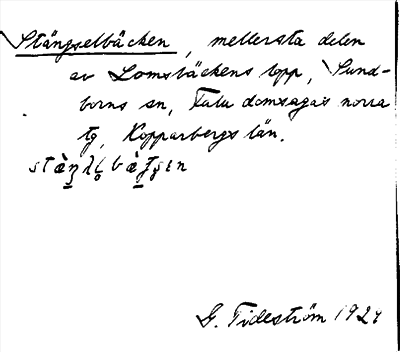 Stängselbäcken, mellersta delen
av Lomsbäckens lopp, Sund-
borns sn, Falu domsagas norra
tg, Kopparbergs län.
G. Tideström 1928